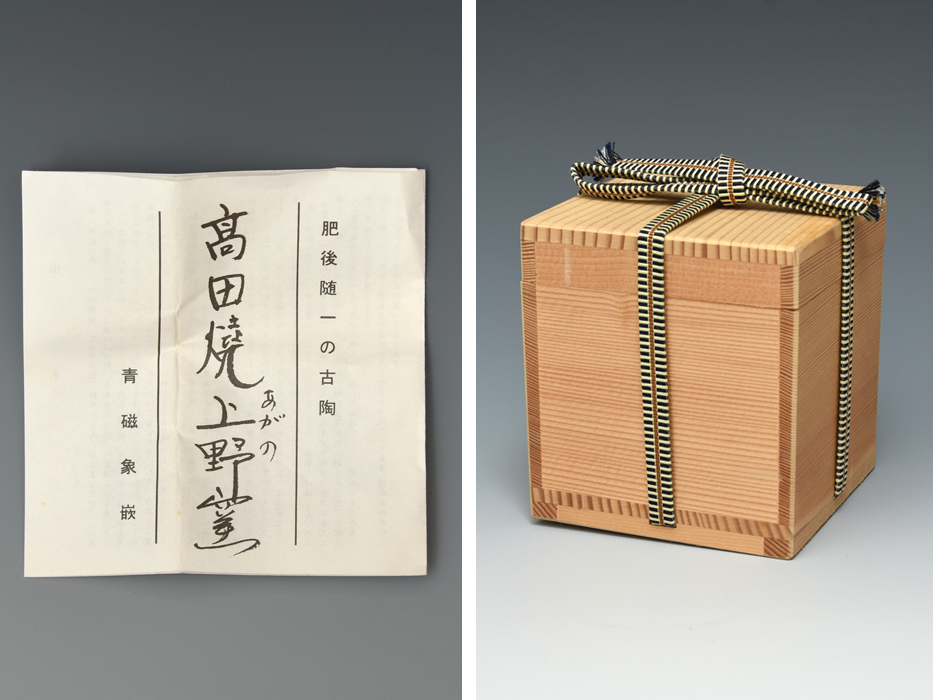 肥後随一の古陶
髙田燒上野窯
あがの
青磁象嵌